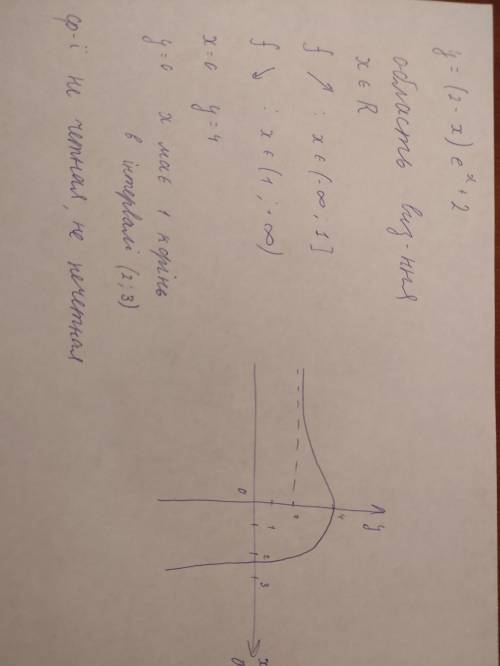 y = (2-x) e^x + 2
область виз-ння
x ∈ R
f ↗ : x ∈ (-∞; 1]
f ↘ : x ∈ (1; +∞)
x=0 y=4
y=0 x має 1 корінь
в інтервалі (2; 3)
ф-ї не четная, не нечетная
y
4
2
1
0
2
3
x